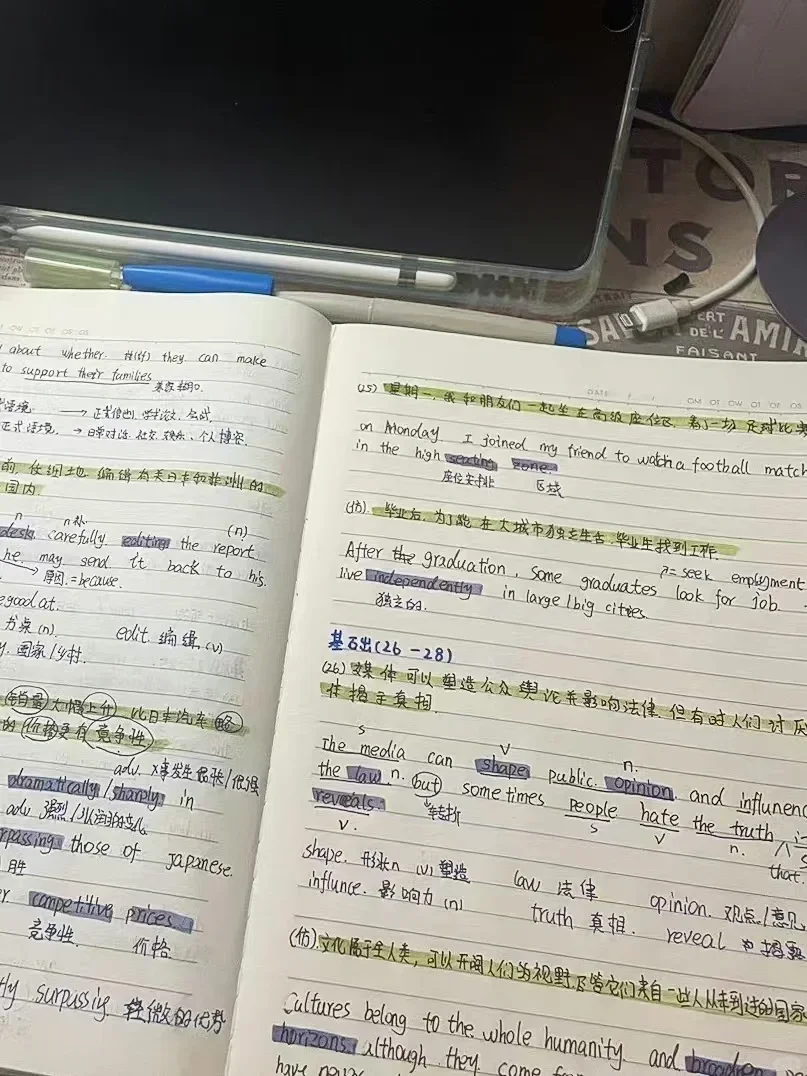 TOR
NS
SA
ERT
DE L'
AMIA
FAISANT
about whether they can make
to support their families
正式语境 → 日常对话、社交、娱乐、个人博客
国内
n
(n)
desk carefully editing the report
he may send it back to his
原因 = because.
good at.
edit 编辑 (v)
国家/乡村.
销量大幅上介 比日本汽车略
的价格更有竞争性
adv.
dramatically/sharply in
adv
surpassing those of Japanese.
胜
competitive prices.
竞争性. 价格
surpassing 轻微的优势
DATE
(25) 星期一,我和朋友们一起坐在高级座位区,看了一场足球比赛
on Monday I joined my friend to watch a football match
in the high seating zone.
座位安排 区域
(仿). 毕业后,为了能在大城市独立生活,毕业生找到工作.
= seek employment
After the graduation, some graduates look for job.
live independently in large/big cities.
独立的.
基石出(26-28)
(26) 媒体可以塑造公众舆论并影响法律,但有时人们讨厌
件揭示真相.
s v n.
The media can shape public opinion and influnenc
the law n. but sometimes people hate the truth
reveals. 转折 s v n. that.
v.
shape. 形状n (v) 塑造 law 法律 opinion. 观点/意见
influnce. 影响力 (n) truth 真相. reveal
(仿).文化属于全人类,可以开阔人们的视野,尽管它们来自一些人从未到过的国家
Cultures belong to the whole humanity and broaden
horizons although they come
have